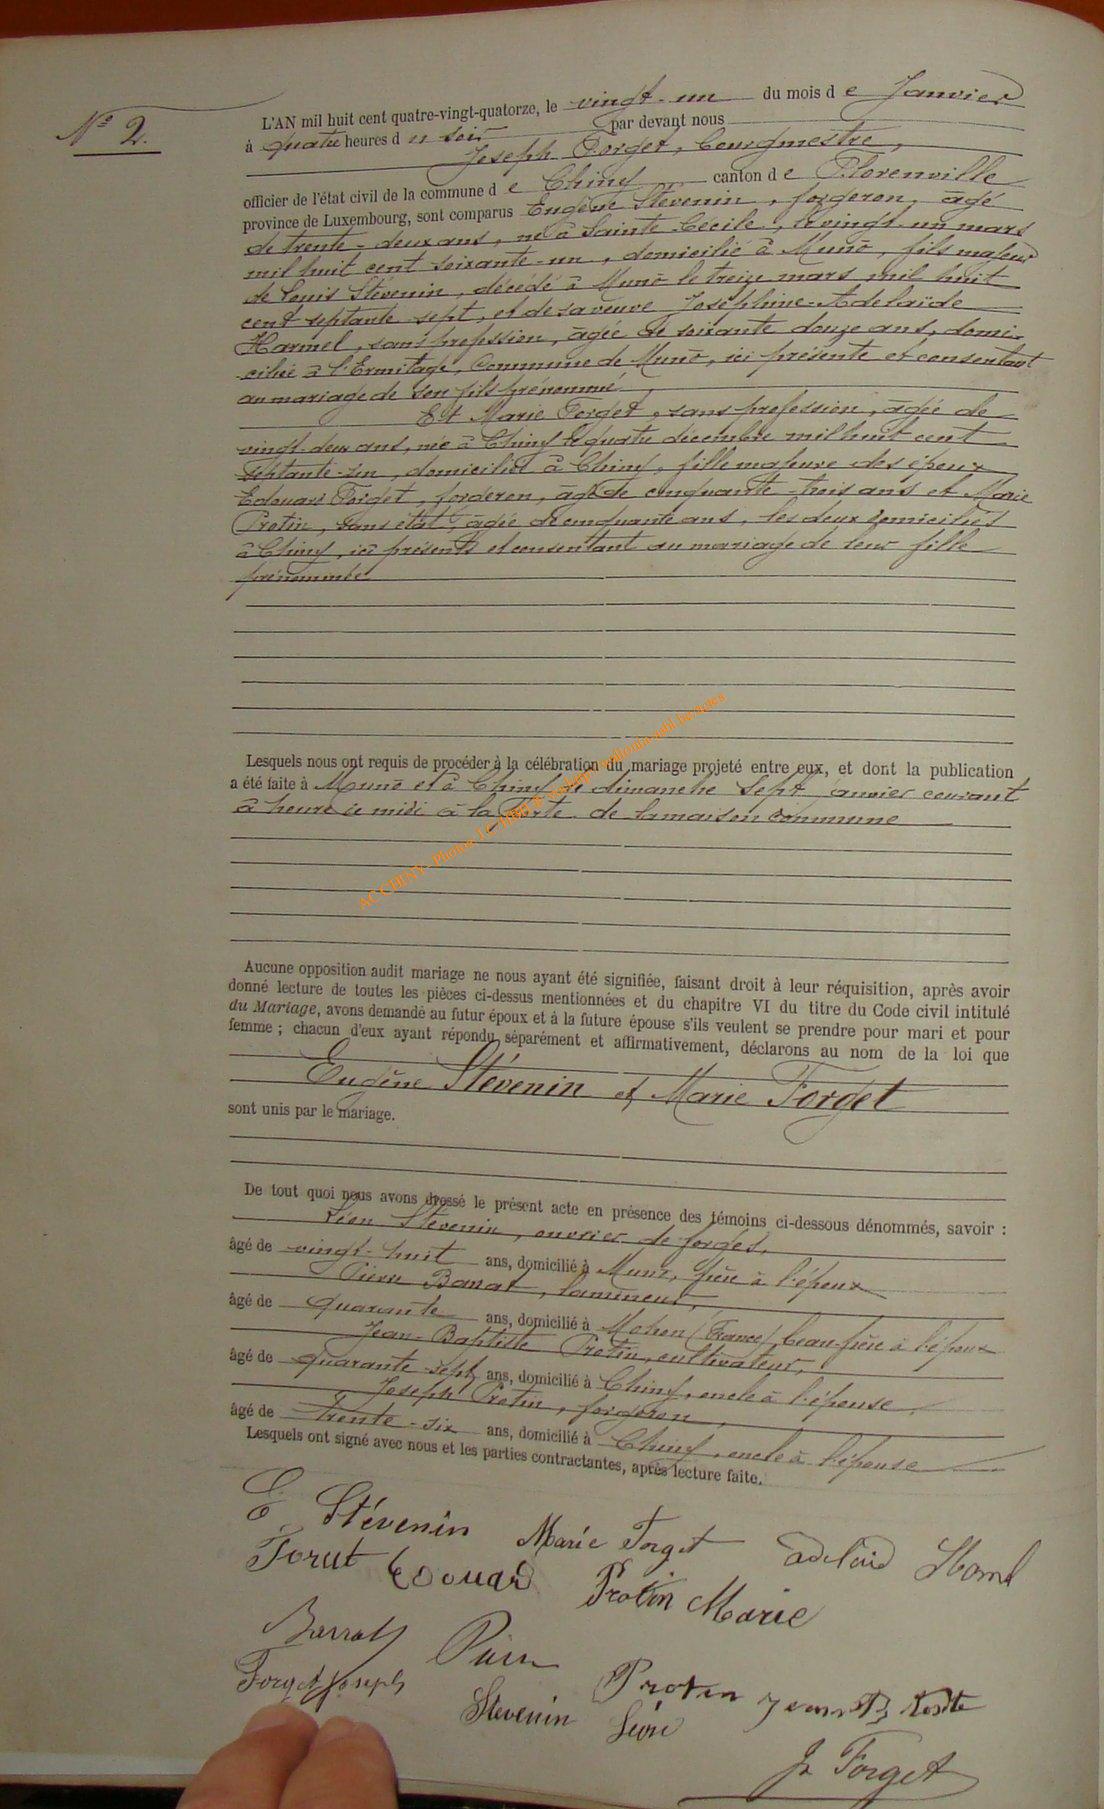 N° 2.
L'AN mil huit cent quatre-vingt-quatorze, le vingt-un du mois de Janvier
à quatre heures du soir par devant nous
Joseph Forget, Bourgmestre,
officier de l'état civil de la commune de Chiny canton de Florenville
province de Luxembourg, sont comparus Eugène Stévenin, forgeron, âgé
de trente-deux ans, né à Sainte Cécile, le vingt-un mars
mil huit cent soixante-un, domicilié à Muno, fils majeur
de Louis Stévenin, décédé à Muno le treize mars mil huit
cent septante sept, et de sa veuve Joséphine-Adelaïde
Harmel, sans profession, âgée de soixante douze ans, domi-
ciliée à l'Ermitage, Commune de Muno, ici présente et consentant
au mariage de son fils prénommé
Et Marie Forget, sans profession, âgée de
vingt-deux ans, née à Chiny le quatre décembre mil huit cent
septante-un, domiciliée à Chiny, fille majeure des époux
Edouard Forget, forgeron, âgé de cinquante-trois ans et Marie
Protin, sans état, âgée de cinquante ans, les deux domiciliés
à Chiny, ici présents et consentant au mariage de leur fille
prénommée
Lesquels nous ont requis de procéder à la célébration du mariage projeté entre eux, et dont la publication
a été faite à Muno et à Chiny le dimanche sept janvier courant
à heure de midi à la porte de la maison commune
AC CHINY - Photos
Aucune opposition audit mariage ne nous ayant été signifiée, faisant droit à leur réquisition, après avoir
donné lecture de toutes les pièces ci-dessus mentionnées et du chapitre VI du titre du Code civil intitulé
du Mariage, avons demandé au futur époux et à la future épouse s'ils veulent se prendre pour mari et pour
femme ; chacun d'eux ayant répondu séparément et affirmativement, déclarons au nom de la loi que
Eugène Stévenin et Marie Forget
sont unis par le mariage.
De tout quoi nous avons dressé le présent acte en présence des témoins ci-dessous dénommés, savoir :
Léon Stévenin, ouvrier de forges,
âgé de vingt-huit ans, domicilié à Muno, frère à l'époux
Pierre Barrat, lamineur,
âgé de quarante ans, domicilié à Mohon (France), beau-frère à l'époux
Jean-Baptiste Protin, cultivateur,
âgé de quarante-sept ans, domicilié à Chiny, oncle à l'épouse,
Joseph Protin, forgeron,
âgé de trente-six ans, domicilié à Chiny, oncle à l'épouse
Lesquels ont signé avec nous et les parties contractantes, après lecture faite.
E Stévenin Marie Forget
Edouard Protin Marie
Barrat Pierre
Protin Jean
Forget Joseph
Stevenin Léon
J. Forget